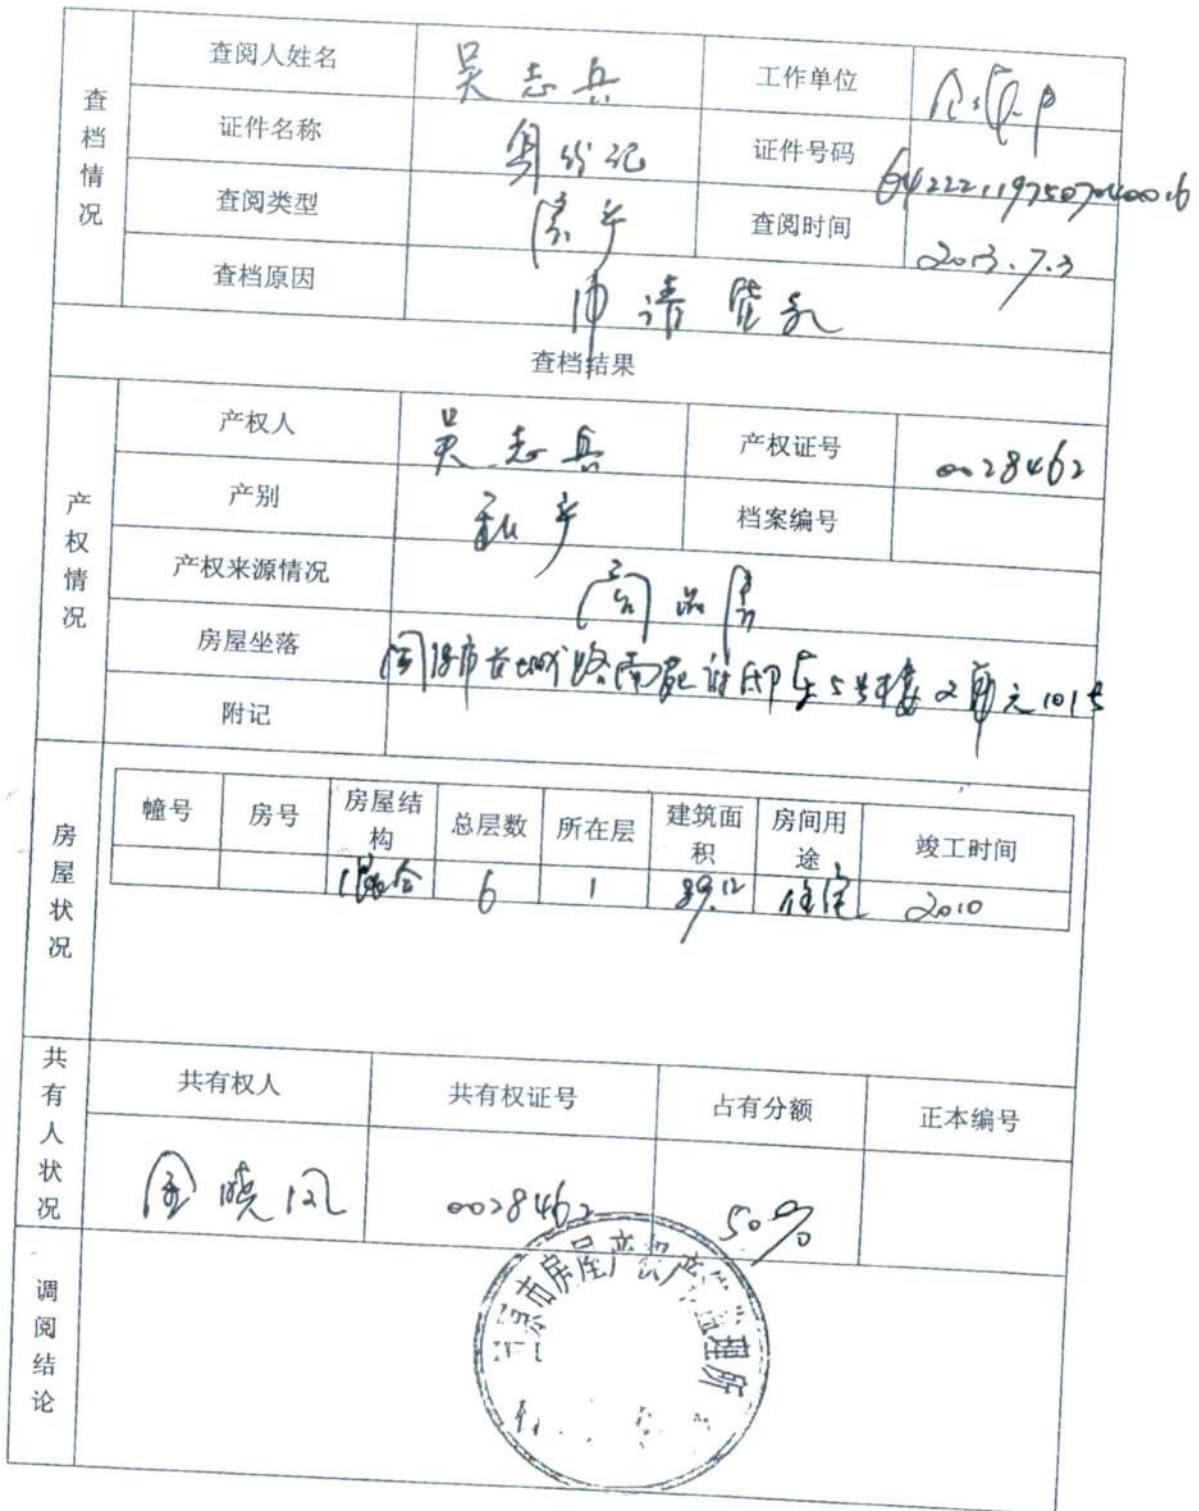 查档情况
查阅人姓名 吴志兵 工作单位
证件名称 身份证 证件号码
查阅类型 房产 查阅时间 2013.7.3
查档原因 申请
查档结果
产权情况
产权人 吴志兵 产权证号 0028462
产别 私产 档案编号
产权来源情况 商品房
房屋坐落 市古城路南 5号楼2单元101号
附记
房屋状况
幢号 房号 房屋结构 总层数 所在层 建筑面积 房间用途 竣工时间
混合 6 1 89.12 住宅 2010
共有人状况
共有权人 共有权证号 占有分额 正本编号
金晓凤 0028462 50%
调阅结论
市房屋产权产 管理所